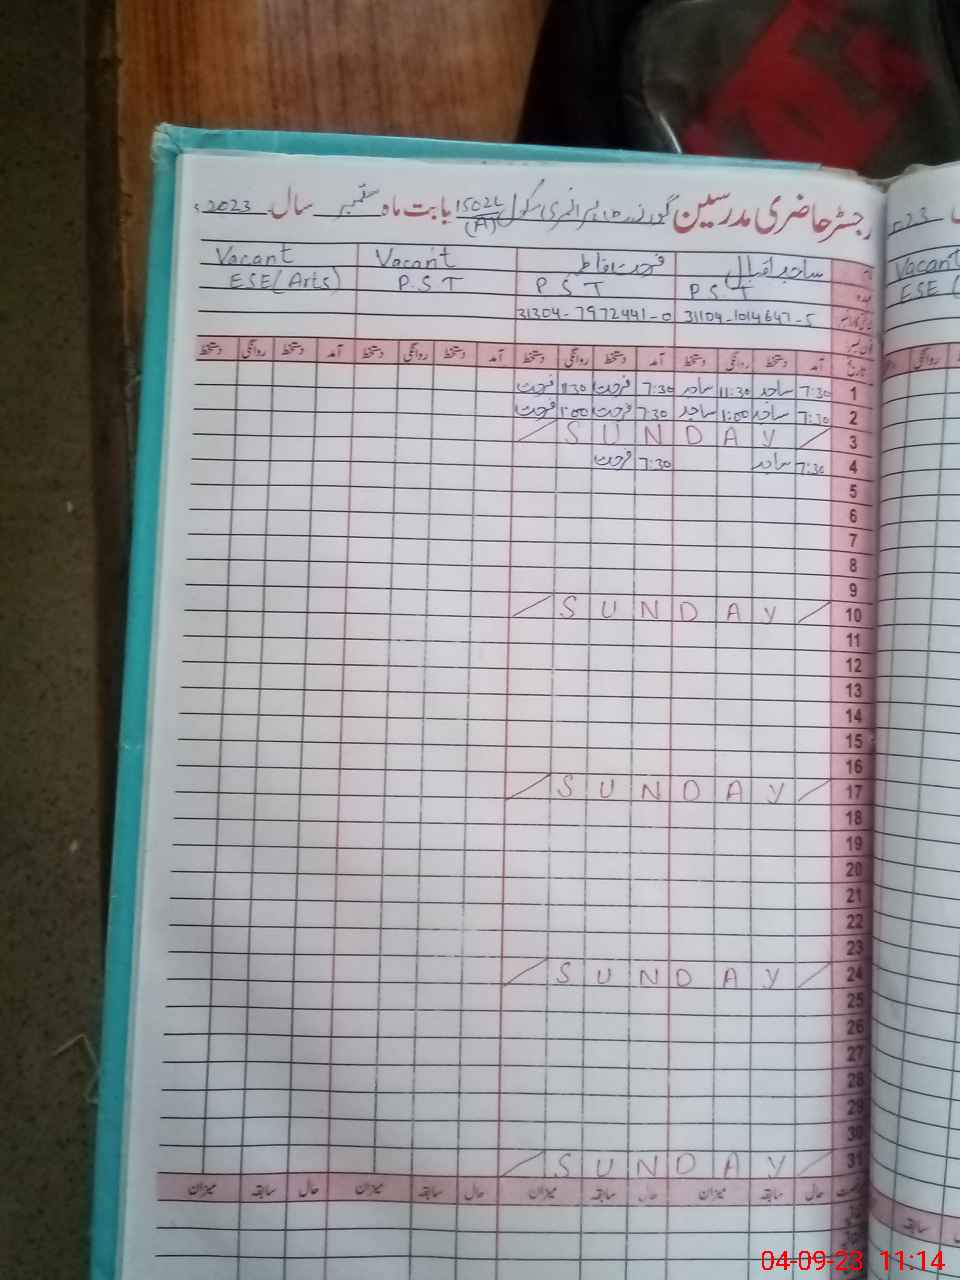 رجسٹر حاضری مدرسین گورنمنٹ پرائمری سکول 15024 (A) بابت ماہ ستمبر سال 2023ء
ساجد اقبال Vacant Vacant
P.S.T P S T P.S.T ESE (Arts)
31104-1014647-5 31304-7972441-0
تاریخ آمد دستخط روانگی دستخط آمد دستخط روانگی دستخط آمد دستخط روانگی دستخط آمد دستخط روانگی دستخط
1 7:30 ساجد 11:30 ساجد 7:30 فرحت 11:30 فرحت
2 7:30 ساجد 1:00 ساجد 7:30 فرحت 1:00 فرحت
3 SUNDAY
4 7:30 ساجد 7:30 فرحت
5
6
7
8
9
10 SUNDAY
11
12
13
14
15
16
17 SUNDAY
18
19
20
21
22
23
24 SUNDAY
25
26
27
28
29
30
31 SUNDAY
حال سابقہ میزان حال سابقہ میزان حال سابقہ میزان حال سابقہ میزان
Vacant
ESE
روانگی
سابقہ
04-09-23 11:14